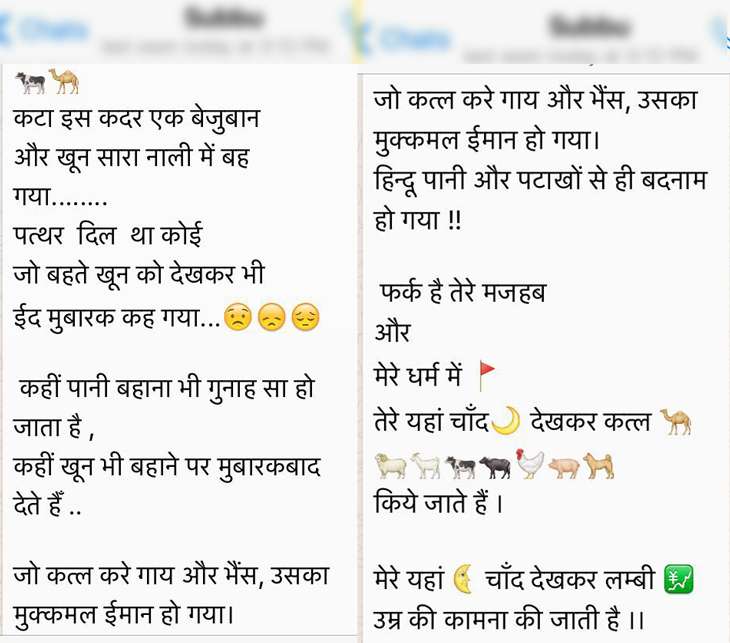 🐄🐫
कटा इस कदर एक बेजुबान
और खून सारा नाली में बह
गया........
पत्थर दिल था कोई
जो बहते खून को देखकर भी
ईद मुबारक कह गया...😟😞😔
कहीं पानी बहाना भी गुनाह सा हो
जाता है ,
कहीं खून भी बहाने पर मुबारकबाद
देते हैँ ..
जो कत्ल करे गाय और भैंस, उसका
मुक्कमल ईमान हो गया।
जो कत्ल करे गाय और भैंस, उसका
मुक्कमल ईमान हो गया।
हिन्दू पानी और पटाखों से ही बदनाम
हो गया !!
फर्क है तेरे मजहब
और
मेरे धर्म में 🚩
तेरे यहां चाँद🌙 देखकर कत्ल 🐪
🐏🐐🐄🐃🐓🐖🐕
किये जाते हैं ।
मेरे यहां 🌜 चाँद देखकर लम्बी 💹
उम्र की कामना की जाती है ।।